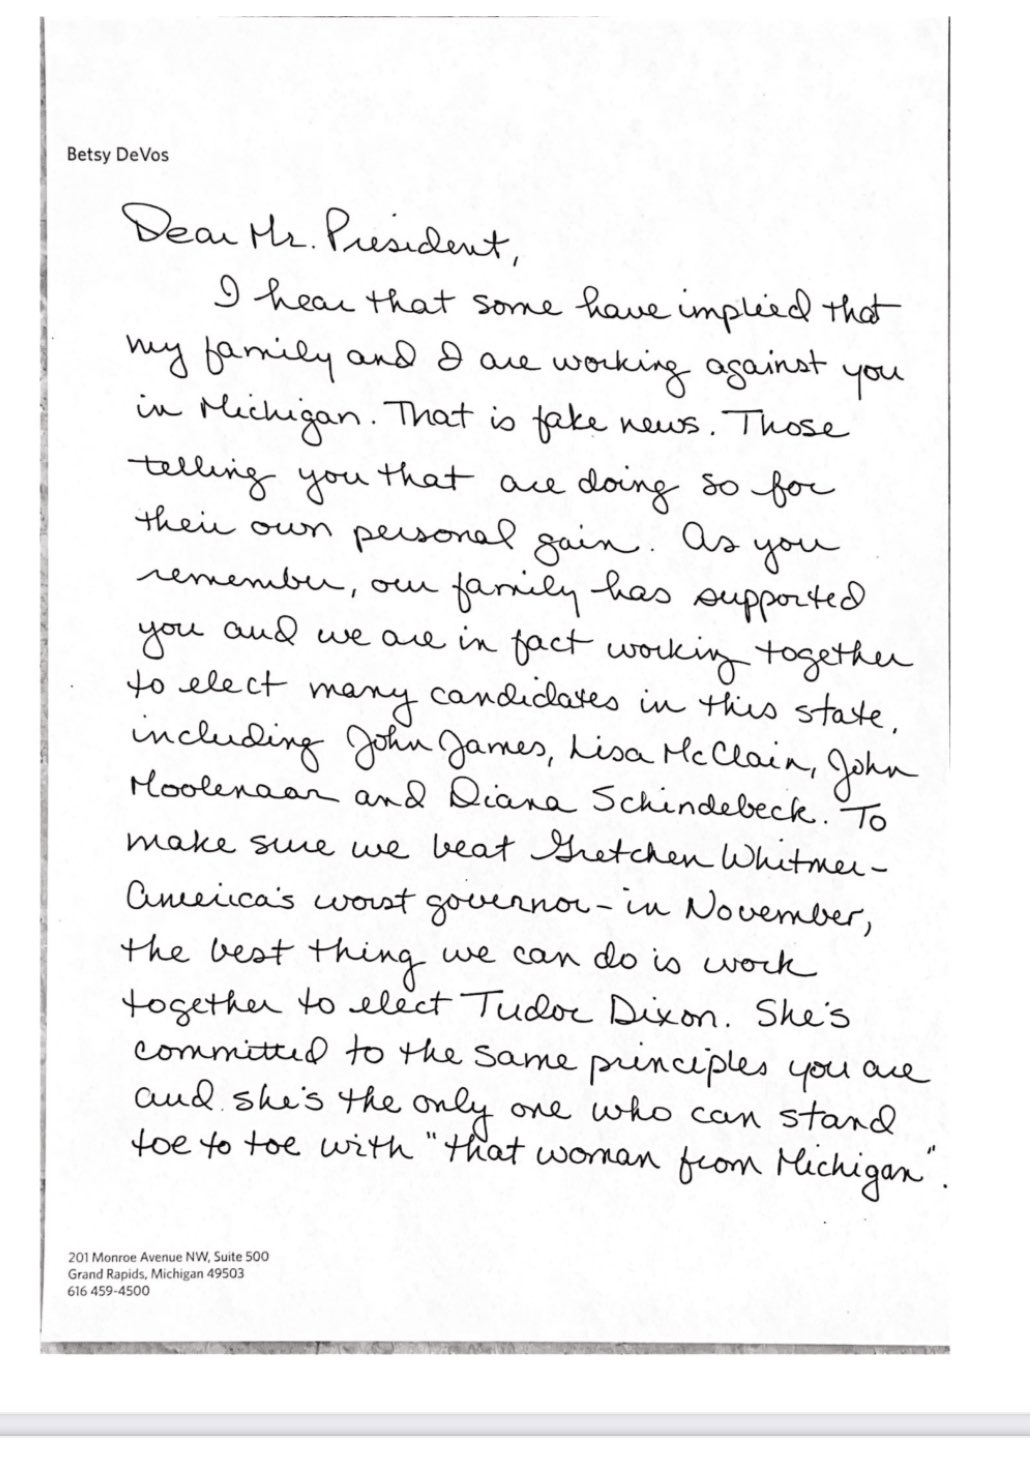 Betsy DeVos
Dear Mr. President,
I hear that some have implied that
my family and I are working against you
in Michigan. That is fake news. Those
telling you that are doing so for
their own personal gain. As you
remember, our family has supported
you and we are in fact working together
to elect many candidates in this state,
including John James, Lisa McClain, John
Moolenaar and Diana Schindebeck. To
make sure we beat Gretchen Whitmer-
America's worst governor - in November,
the best thing we can do is work
together to elect Tudor Dixon. She's
committed to the same principles you are
and she's the only one who can stand
toe to toe with "that woman from Michigan".
201 Monroe Avenue NW, Suite 500
Grand Rapids, Michigan 49503
616 459-4500